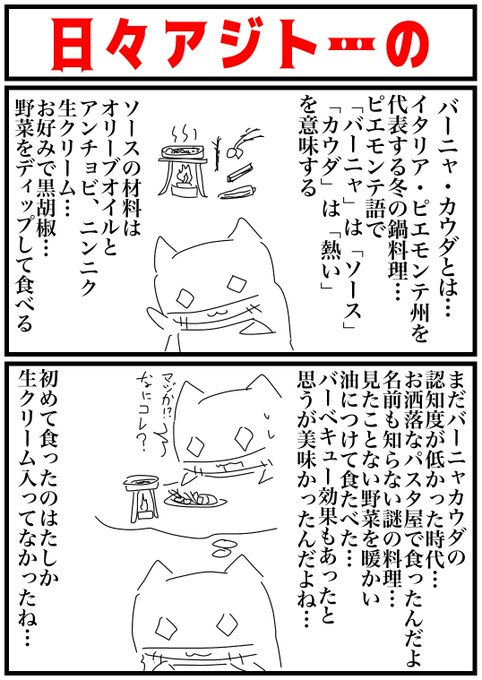 日々アジト…の
バーニャ・カウダとは…
イタリア・ピエモンテ州を
代表する冬の鍋料理…
ピエモンテ語で
「バーニャ」は「ソース」
「カウダ」は「熱い」
を意味する
ソースの材料は
オリーブオイルと
アンチョビ、ニンニク
生クリーム…
お好みで黒胡椒…
野菜をディップして食べる
まだバーニャカウダの
認知度が低かった時代…
お洒落なパスタ屋で食ったんだよ
名前も知らない謎の料理…
見たことない野菜を暖かい
油につけて食たべた…
バーベキュー効果もあったと
思うが美味かったんだよね…
マジか!?
なにコレ?
初めて食ったのはたしか
生クリーム入ってなかったね…